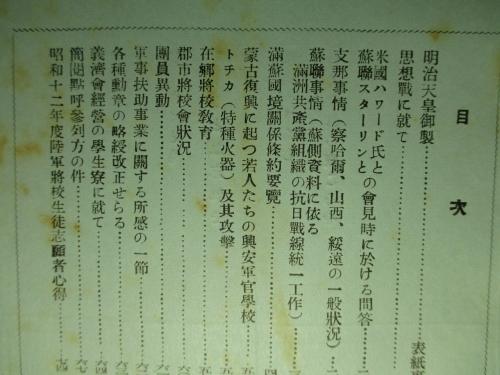 目次
明治天皇御製……表紙裏
思想戰に就て
米國ハワード氏との會見時に於ける問答
蘇聯スターリンと
支那事情（察哈爾、山西、綏遠の一般狀況）
蘇聯事情（蘇側資料に依る
滿洲共產黨組織の抗日戰線統一工作）
滿蘇國境關係條約要覽
蒙古復興に起つ若人たちの興安軍官學校
トチカ（特種火器）及其攻擊
在鄕將校敎育
郡市將校會狀況
團員異動
軍事扶助事業に關する所感の一節
各種勳章の略綬改正せらる
義濟會經營の學生寮に就て
簡閱點呼參到方の件
昭和十二年度陸軍將校生徒志願者心得